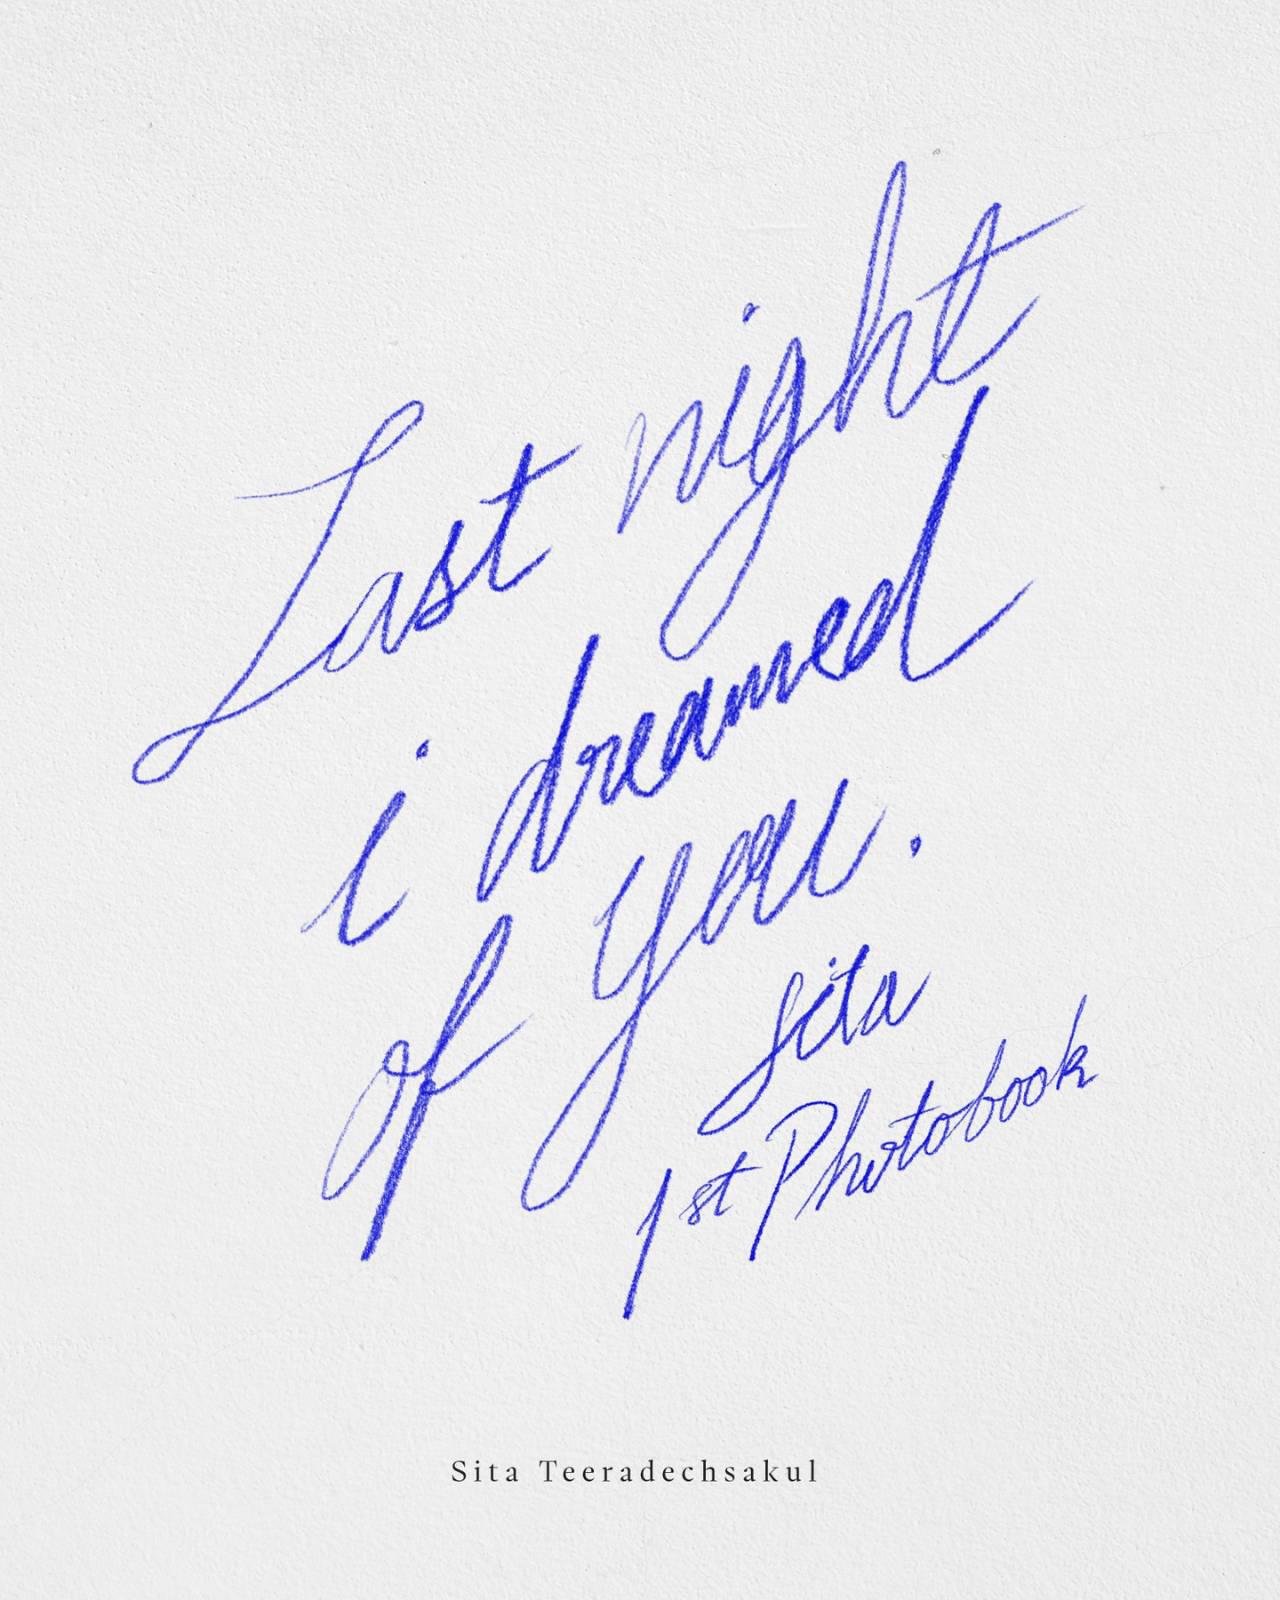 Last night
i dreamed
of you.
Sita
1st Photobook
Sita Teeradechsakul